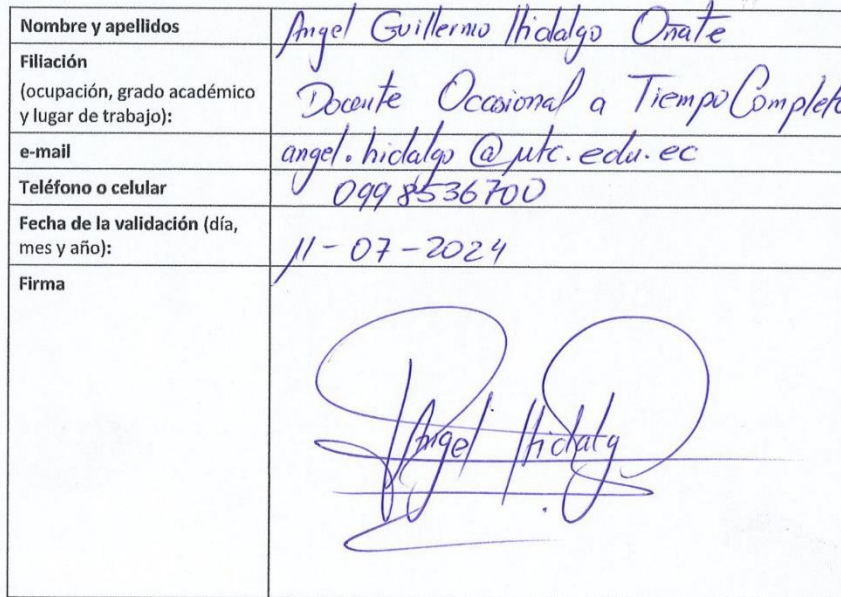 Nombre y apellidos
Angel Guillermo Hidalgo Oñate
Filiación
(ocupación, grado académico
y lugar de trabajo):
Docente Ocasional a Tiempo Completo
e-mail
angel.hidalgo@utc.edu.ec
Teléfono o celular
0998536700
Fecha de la validación (día,
mes y año):
11-07-2024
Firma
Angel Hidalg